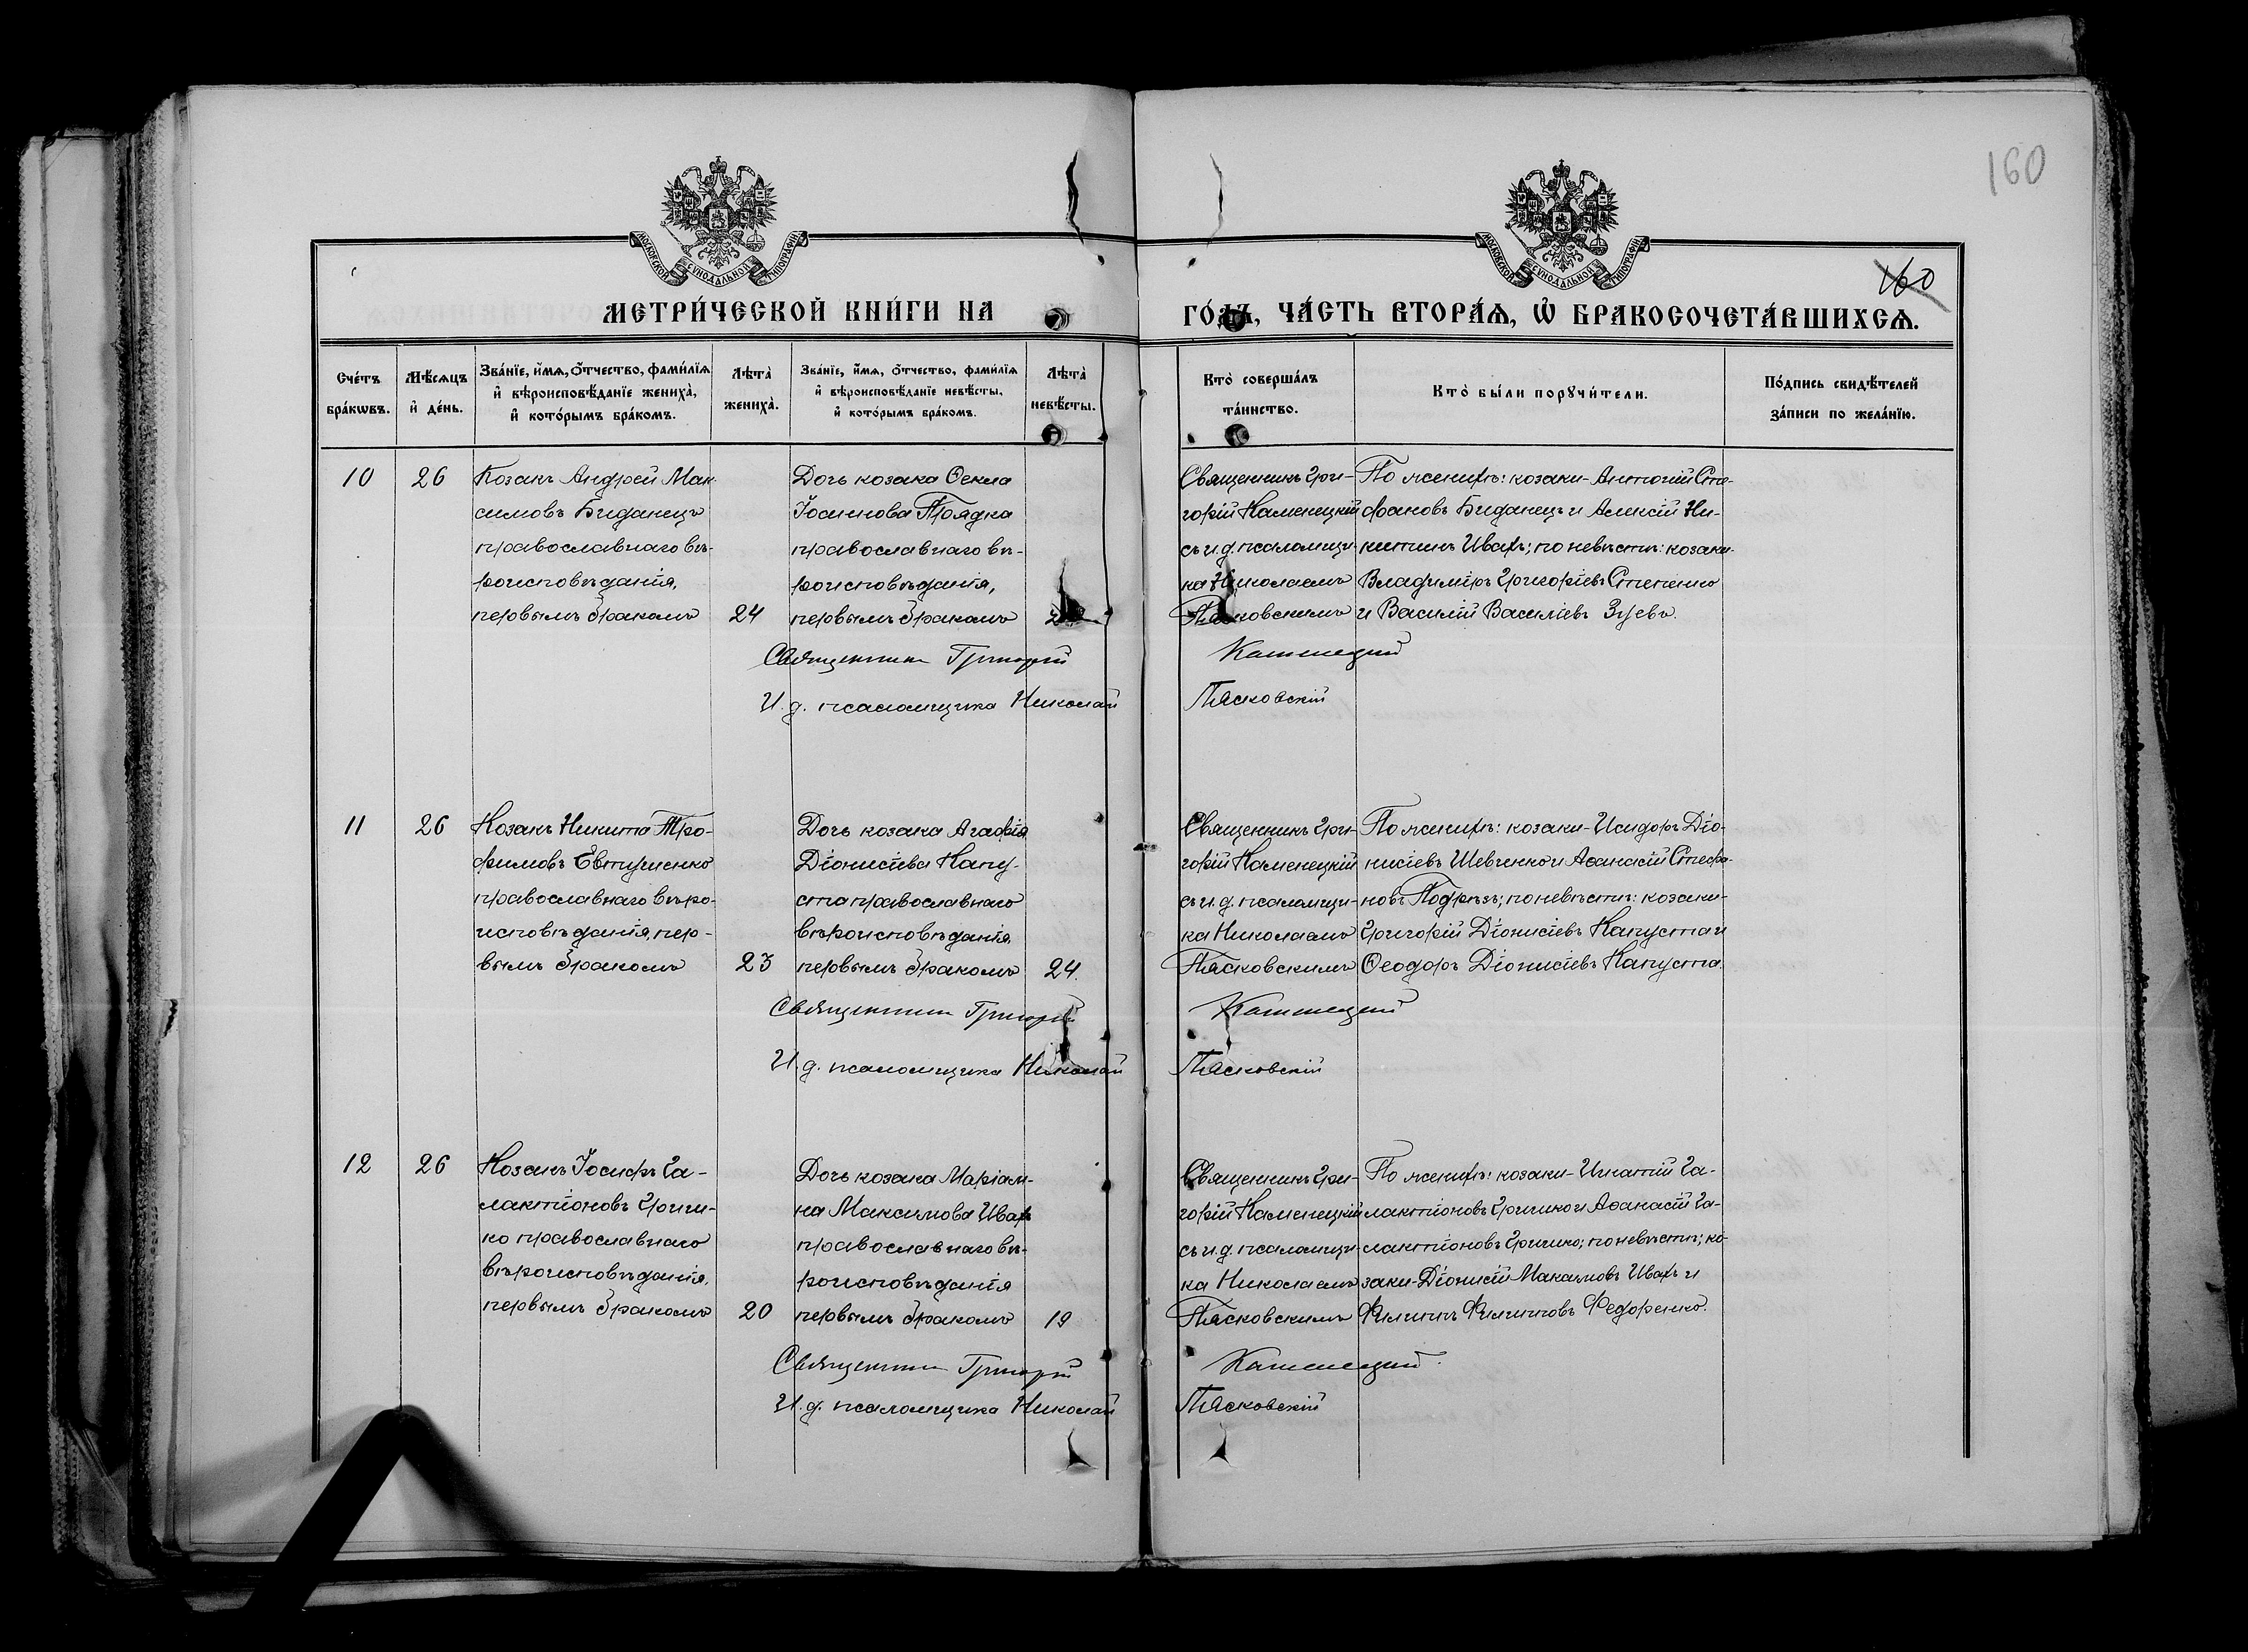 160
160
МОСКОВСКОЙ СѴНОДАЛЬНОЙ ТИПОГРАФІИ
МОСКОВСКОЙ СѴНОДАЛЬНОЙ ТИПОГРАФІИ
МЕТРИ́ЧЕСКОЙ КНИ́ГИ НА
ГО́ДЪ, ЧА́СТЬ ВТОРА́Ѧ, Ѽ БРАКОСОЧЕТА́ВШИХСѦ.
Сче́тъ бра́кѡвъ.
Мѣ́сѧцъ и҆ де́нь.
Зва́нїе, и҆́мѧ, ѻ҆́тчество, фами́лїѧ
и҆ вѣроисповѣ́данїе жениха̀,
и҆ кото́рымъ бра́комъ.
Лѣта̀ жениха̀.
Зва́нїе, и҆́мѧ, ѻ҆́тчество, фами́лїѧ
и҆ вѣроисповѣ́данїе невѣ́сты,
и҆ кото́рымъ бра́комъ.
Лѣта̀ невѣ́сты.
Кто̀ соверша́лъ
та́инство.
Кто̀ бы́ли порꙋчи́тели.
По́дпись свидѣ́телей
за́писи по жела́нїю.
10
26
Козакъ Андрей Мак-
симовъ Биданецъ
православнаго вѣ-
роисповѣданія,
первымъ бракомъ
24
Дочь козака Ѳекла
Іосипова Прядка
православнаго вѣ-
роисповѣданія,
первымъ бракомъ
Священникъ Гри-
горій Каменецкій
съ и.д. псаломщи-
ка Николаемъ
Пясковскимъ
По женихѣ: козаки - Антоній Сте-
фановъ Биданецъ и Алексій Ни-
китинъ Ивахъ; по невѣстѣ: козаки-
Владиміръ Григоріевъ Степенко
и Василій Василіевъ Зуевъ.
Священникъ Григорій Каменецкій
И. д. псаломщика Николай Пясковскій
11
26
Козакъ Никита Тро-
фимовъ Евтушенко
православнаго вѣро-
исповѣданія, пер-
вымъ бракомъ
23
Дочь козака Агафія
Діонисіева Капу-
ста православнаго
вѣроисповѣданія,
первымъ бракомъ
24.
Священникъ Гри-
горій Каменецкій
съ и.д. псаломщи-
ка Николаемъ
Пясковскимъ
По женихѣ: козаки - Исидоръ Діо-
нисіевъ Шевченко и Аѳанасій Стефа-
новъ Подрѣзъ; по невѣстѣ: козаки-
Григорій Діонисіевъ Капуста и
Ѳеодоръ Діонисіевъ Капуста.
Священникъ Григорій Каменецкій
И. д. псаломщика Николай Пясковскій
12
26
Козакъ Іосифъ Га-
лактіоновъ Гричи-
ко православнаго
вѣроисповѣданія,
первымъ бракомъ
20
Дочь козака Маріам-
на Максимова Ивахъ
православнаго вѣ-
роисповѣданія
первымъ бракомъ
19
Священникъ Гри-
горій Каменецкій
съ и.д. псаломщи-
ка Николаемъ
Пясковскимъ
По женихѣ: козаки - Игнатій Га-
лактіоновъ Гричико и Аѳанасій Га-
лактіоновъ Гричико; по невѣстѣ; ко-
заки - Діонисій Максимовъ Ивахъ и
Филиппъ Филипповъ Федоренко.
Священникъ Григорій Каменецкій.
И. д. псаломщика Николай Пясковскій